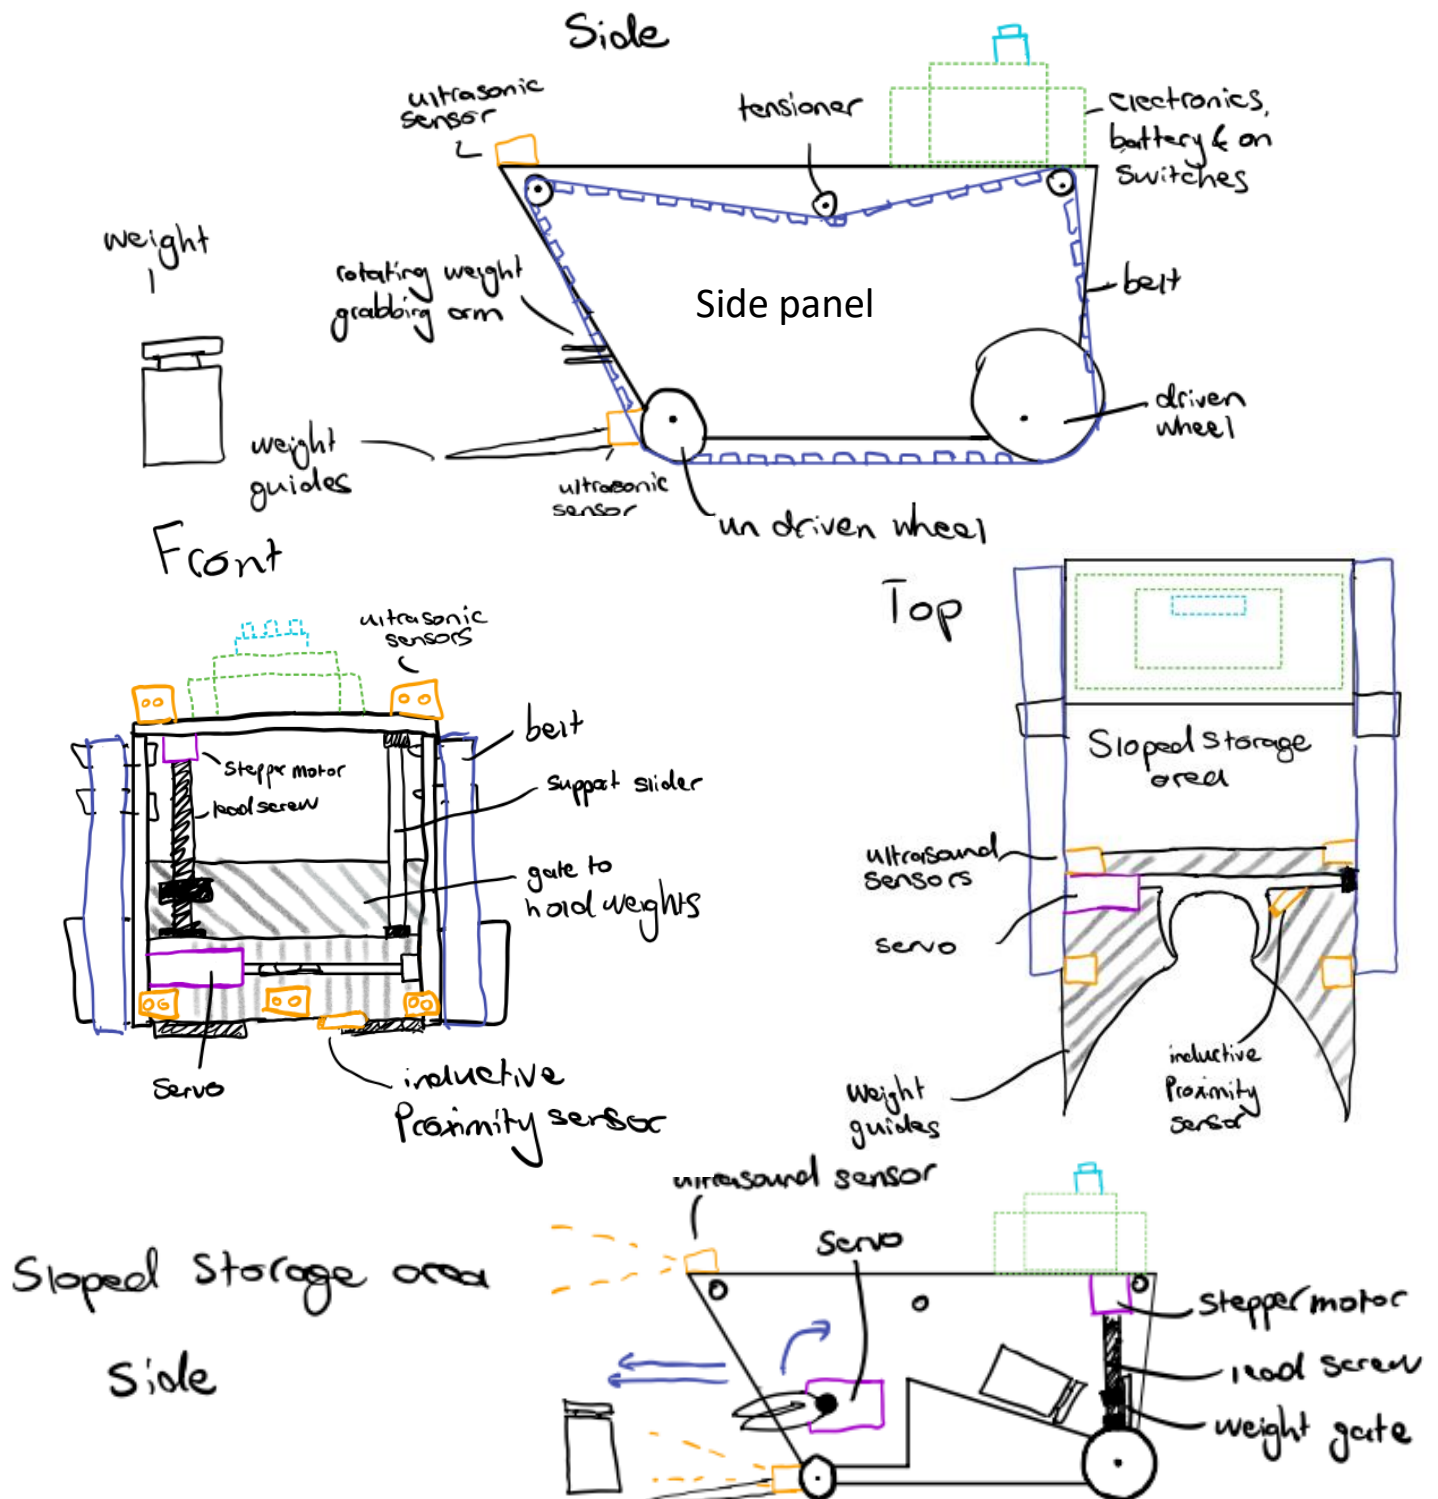 Side
ultrasonic
sensor
tensioner
electronics,
battery & on
switches
weight
rotating weight
grabbing arm
Side panel
belt
driven
wheel
weight
guides
ultrasonic
sensor
un driven wheel
Front
Top
ultrasonic
sensors
belt
stepper motor
lead screw
support slider
gate to
hold weights
servo
inductive
Proximity sensor
Sloped Storage
area
ultrasound
sensors
servo
weight
guides
inductive
Proximity
sensor
ultrasound sensor
Sloped Storage area
Side
Servo
Stepper motor
lead screw
weight gate